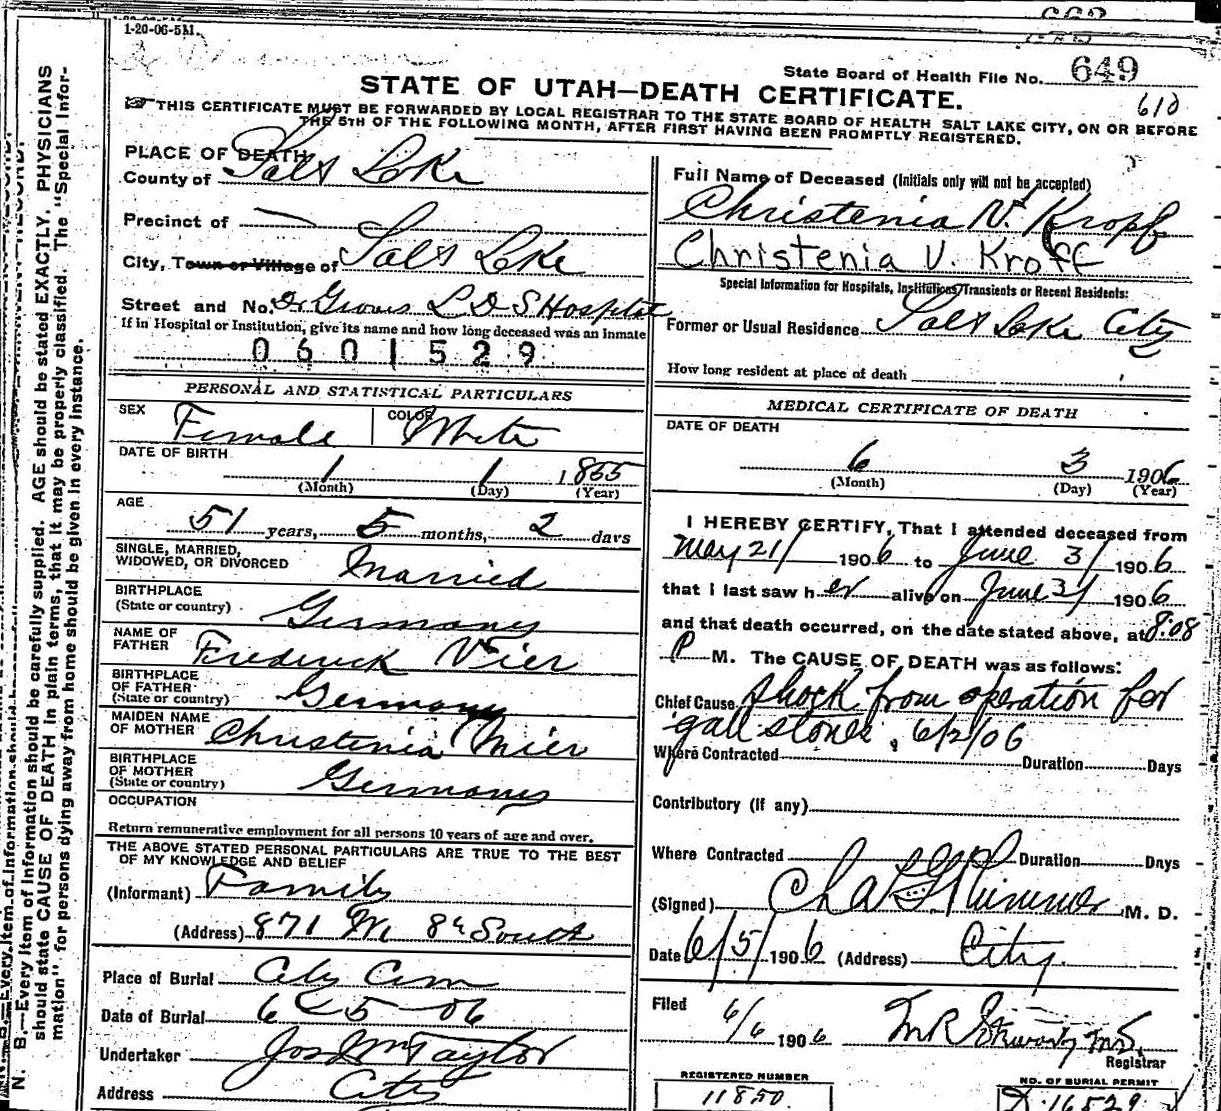 1-20-06-5M.
State Board of Health File No. 649
610
STATE OF UTAH—DEATH CERTIFICATE.
☞THIS CERTIFICATE MUST BE FORWARDED BY LOCAL REGISTRAR TO THE STATE BOARD OF HEALTH SALT LAKE CITY, ON OR BEFORE
THE 5TH OF THE FOLLOWING MONTH, AFTER FIRST HAVING BEEN PROMPTLY REGISTERED.
PLACE OF DEATH
County of Salt Lake
Precinct of —
City, Town or Village of Salt Lake
Street and No. Dr Groves L D S Hospital
If in Hospital or Institution, give its name and how long deceased was an inmate
0601529
PERSONAL AND STATISTICAL PARTICULARS
SEX Female COLOR White
DATE OF BIRTH
1 1 1855
(Month) (Day) (Year)
AGE
51 years, 5 months, 2 days
SINGLE, MARRIED,
WIDOWED, OR DIVORCED Married
BIRTHPLACE
(State or country) Germany
NAME OF
FATHER Frederick Vier
BIRTHPLACE
OF FATHER
(State or country) Germany
MAIDEN NAME
OF MOTHER Christenia Mier
BIRTHPLACE
OF MOTHER
(State or country) Germany
OCCUPATION
Return remunerative employment for all persons 10 years of age and over.
THE ABOVE STATED PERSONAL PARTICULARS ARE TRUE TO THE BEST
OF MY KNOWLEDGE AND BELIEF
(Informant) Family
(Address) 871 8th South
Place of Burial City Cem
Date of Burial 6 - 5 - 06
Undertaker Jos Wm Taylor
Address City
Full Name of Deceased (Initials only will not be accepted)
Christenia V. Kropf
Christenia V. Kroff
Special Information for Hospitals, Institutions, Transients or Recent Residents:
Former or Usual Residence Salt Lake City
How long resident at place of death
MEDICAL CERTIFICATE OF DEATH
DATE OF DEATH
6 3 1906
(Month) (Day) (Year)
I HEREBY CERTIFY, That I attended deceased from
May 21/ 1906 to June 3/ 1906
that I last saw her alive on June 3/ 1906
and that death occurred, on the date stated above, at 8:08
P M. The CAUSE OF DEATH was as follows:
Chief Cause Shock from operation for
gall stones, 6/2/06
Where Contracted Duration Days
Contributory (if any)
Where Contracted Duration Days
(Signed) Chas M. D.
Date 6/5/1906 (Address) City.
Filed
6/6 1906
Registrar
REGISTERED NUMBER
11850
NO. OF BURIAL PERMIT
16529
N. B.—Every item of information should be carefully supplied. AGE should be stated EXACTLY. PHYSICIANS
should state CAUSE OF DEATH in plain terms, that it may be properly classified. The "Special Infor-
mation" for persons dying away from home should be given in every instance.